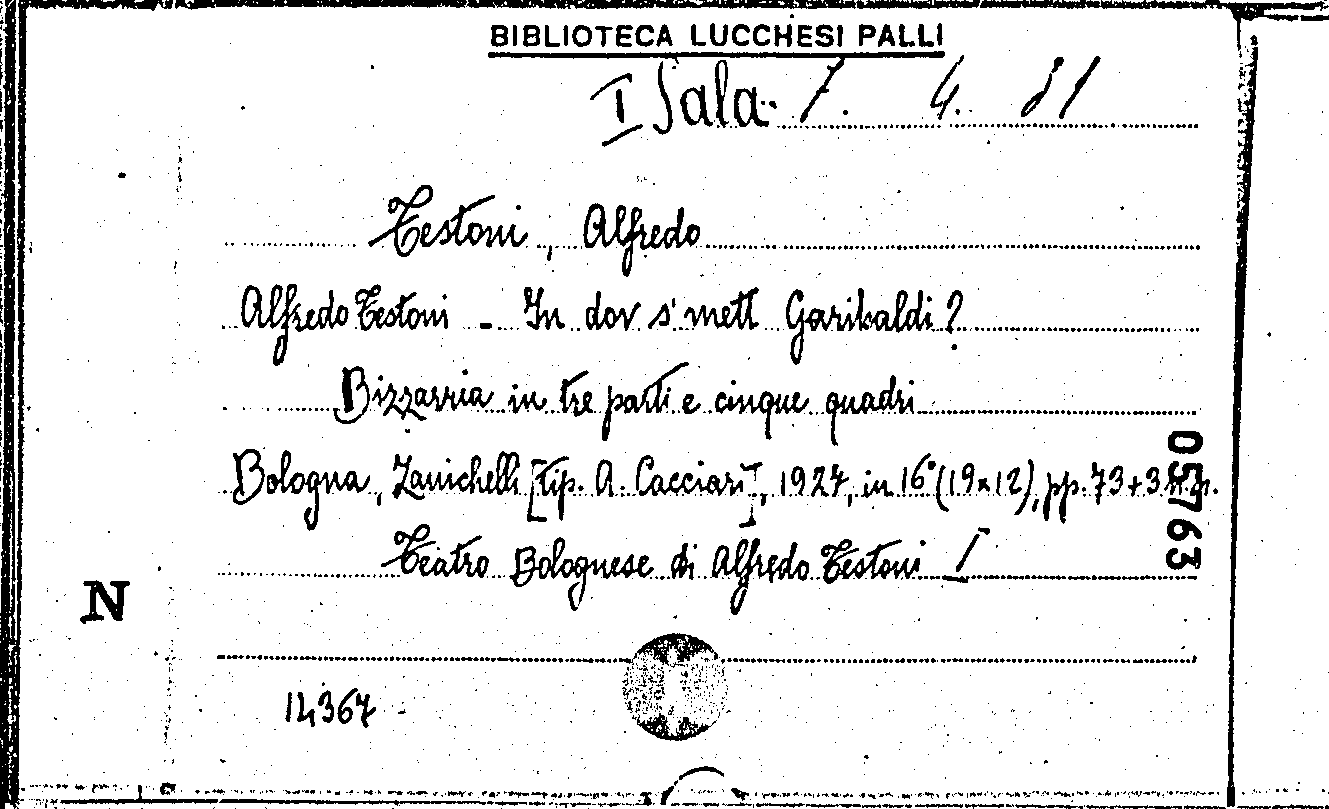 BIBLIOTECA LUCCHESI PALLI
I Sala 7. 4. 51
Testoni, Alfredo
Alfredo Testoni - In dov s'mett Garibaldi?
Bizzarria in tre parti e cinque quadri
Bologna, Zanichelli [tip. A. Cacciari], 1927, in 16° (19x12), pp. 73+3 n.n.
Teatro Bolognese di Alfredo Testoni I
05763
N
14367